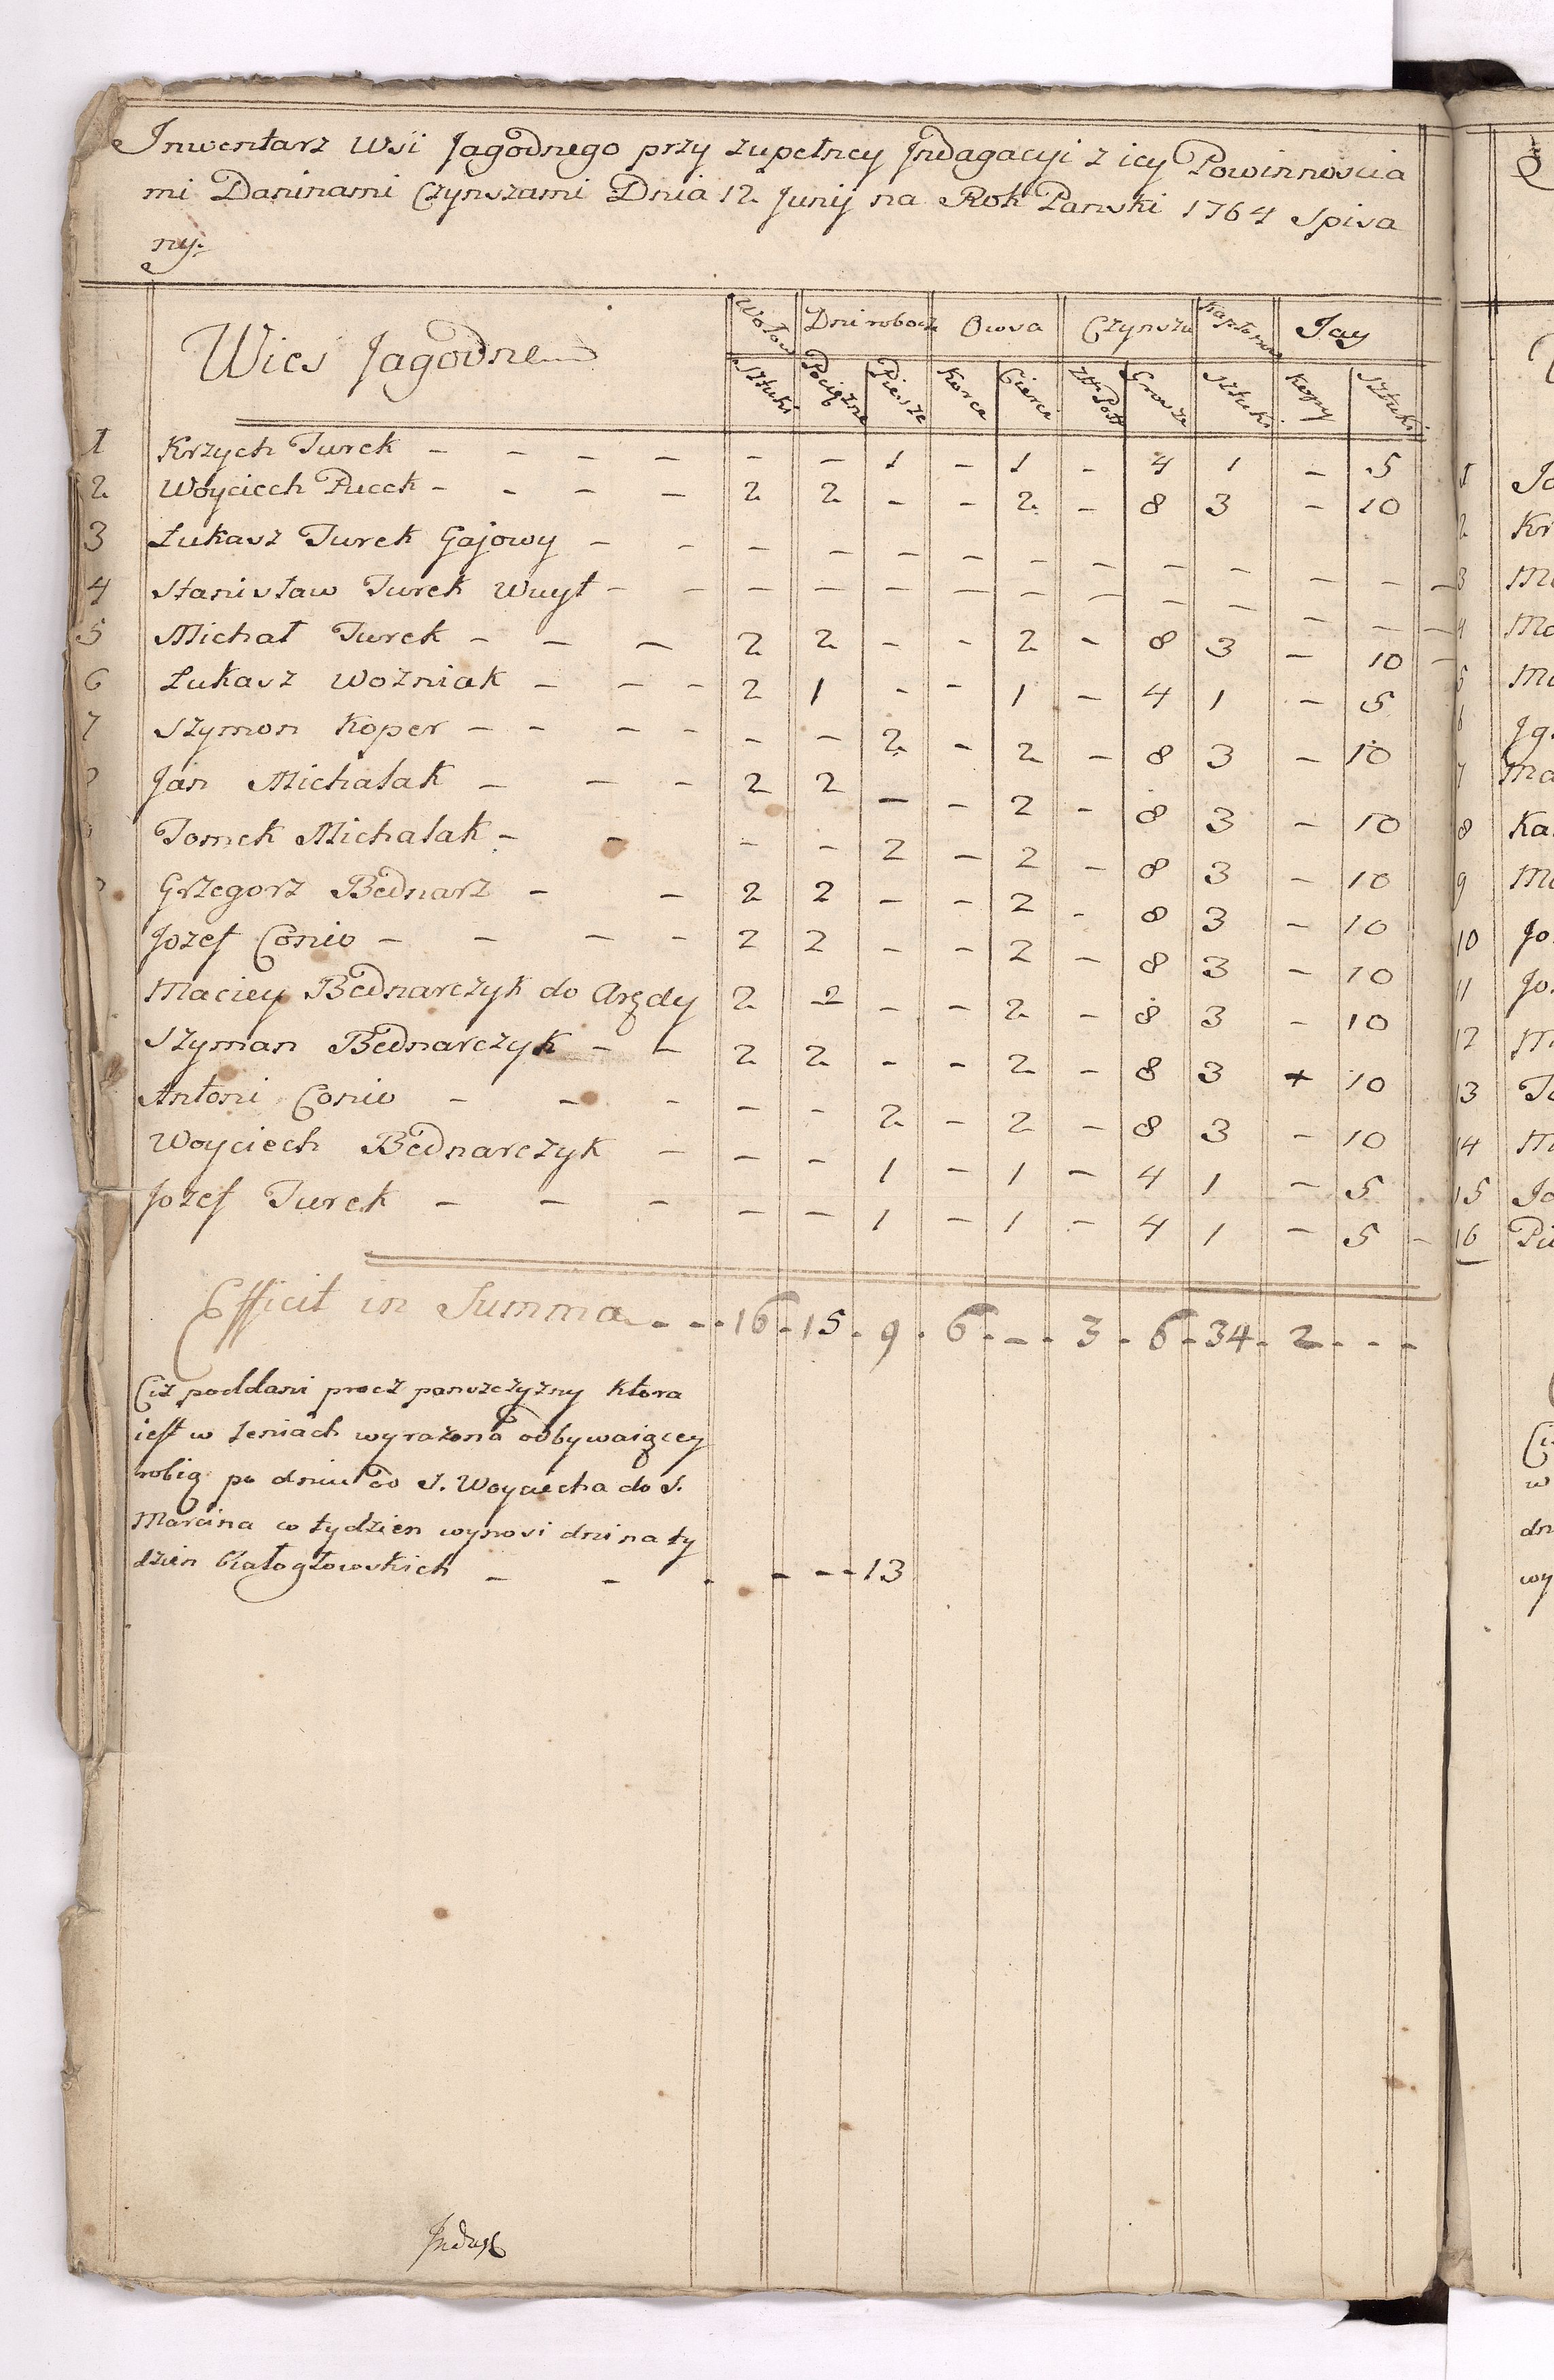 Inwentarz Wsi Jagodnego przy zupełney Jndagacyi z iey Powinnoscia
mi Daninami Czynszami Dnia 12 Junij na Rok Panski 1764 Spisa
ny.
Wies Jagodne
Wołow Dni robocze Owsa Czynszu Kapłonow Jay
Sztuki Pociężne Piesze Korce Cierci Złł: Pols Grosze Sztuki Kopy Sztuki
1 Krzych Turek - - - - - - 1 - 1 - 4 1 - 5
2 Woyciech Pucek - - - - 2 2 - - 2 - 8 3 - 10
3 Łukasz Turek Gajowy - - - - - - - - - - - -
4 Stanisław Turek Wuyt - - - - - - - - - - - -
5 Michał Turek - - - 2 2 - - 2 - 8 3 - 10
6 Łukasz Wozniak - - - 2 1 - - 1 - 4 1 - 5
7 Szymon Koper - - - - - - 2 - 2 - 8 3 - 10
Jan Michalak - - - 2 2 - - 2 - 8 3 - 10
Tomek Michalak - - - - 2 - 2 - 8 3 - 10
Grzegorz Bednarz - - 2 2 - - 2 - 8 3 - 10
Jozef Conio - - - - 2 2 - - 2 - 8 3 - 10
Maciey Bednarczyk do Arędy 2 2 - - 2 - 8 3 - 10
Szyman Bednarczyk - - 2 2 - - 2 - 8 3 + 10
Antoni Conio - - - - - 2 - 2 - 8 3 - 10
Woyciech Bednarczyk - - - 1 - 1 - 4 1 - 5
Jozef Turek - - - - - 1 - 1 - 4 1 - 5
Efficit in Summa - - - 16 - 15 - 9 - 6 - - - 3 - 6 - 34 - 2 - - -
Ciz poddani procz panszczyzny ktora
iest w Leniach wyrazona odbywaiącey
robią po dniu od S. Woyciecha do S.
Marcina w tydzien wynosi dni na ty
dzien Białogłowskich - - - - - - 13
1
2 Kr
3
4
5
6
7 Ma
8 Ka
9
10 Jo
11 Jo
12
13
14
15
16
w
dn
wy